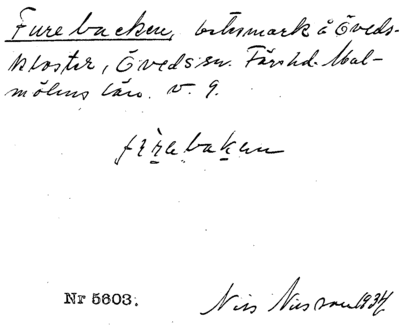 Furebacken, betesmark å Öveds-
kloster, Öveds sn. Färs hd. Mal-
möhus län. v. 9.
fùrebaken
Nr 5603.
Nils Nilsson 1934